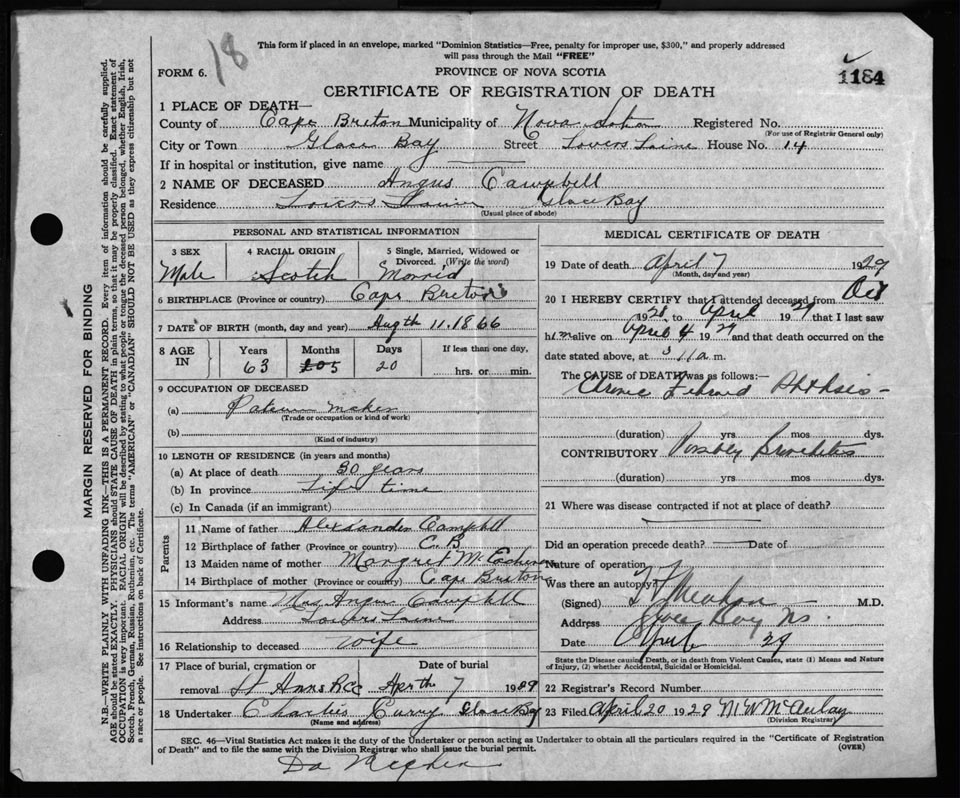 18
This form if placed in an envelope, marked "Dominion Statistics—Free, penalty for improper use, $300," and properly addressed
will pass through the Mail "FREE"
1184
FORM 6. PROVINCE OF NOVA SCOTIA
CERTIFICATE OF REGISTRATION OF DEATH
1 PLACE OF DEATH—
County of Cape Breton Municipality of Nova Scotia Registered No.
(For use of Registrar General only)
City or Town Glace Bay Street Lovers Laine House No. 14
If in hospital or institution, give name
2 NAME OF DECEASED Angus Campbell
Residence Glace Bay
(Usual place of abode)
PERSONAL AND STATISTICAL INFORMATION
3 SEX 4 RACIAL ORIGIN 5 Single, Married, Widowed or
Divorced. (Write the word)
Male Scotch Morrid
6 BIRTHPLACE (Province or country) Cape Breton
7 DATE OF BIRTH (month, day and year) Augth 11. 1866
8 AGE IN Years Months Days If less than one day,
63 5 20 hrs. or min.
9 OCCUPATION OF DECEASED
(a) maker
(Trade or occupation or kind of work)
(b)
(Kind of industry)
10 LENGTH OF RESIDENCE (in years and months)
(a) At place of death 30 years
(b) In province Life time
(c) In Canada (if an immigrant)
Parents
11 Name of father Alexander Campbell
12 Birthplace of father (Province or country) C. B
13 Maiden name of mother Margret McEachern
14 Birthplace of mother (Province or country) Cape Breton
15 Informant's name Mrs Angus Campbell
Address Lovers Laine
16 Relationship to deceased wife
17 Place of burial, cremation or Date of burial
removal St Anns RCC Aprth 7 1929
18 Undertaker Charlies Curry Glace Bay
(Name and address)
MEDICAL CERTIFICATE OF DEATH
19 Date of death April 7 1929
(Month, day and year)
20 I HEREBY CERTIFY that I attended deceased from Oct
1928 to April 1929 that I last saw
him alive on April 4 1929 and that death occurred on the
date stated above, at 3 11 a.m.
The CAUSE of DEATH was as follows:—
Chronic Fibroid Phthisis
(duration) yrs mos dys.
CONTRIBUTORY Possibly Bronchitis
(duration) yrs. mos. dys.
21 Where was disease contracted if not at place of death?
Did an operation precede death? Date of
Nature of operation
Was there an autopsy?
(Signed) M.D.
Address Glace Bay NS.
Date April 29
State the Disease causing Death, or in death from Violent Causes, state (1) Means and Nature
of Injury, (2) whether Accidental, Suicidal or Homicidal.
22 Registrar's Record Number
23 Filed April 20 1929 M W McAulay
(Division Registrar)
SEC. 46—Vital Statistics Act makes it the duty of the Undertaker or person acting as Undertaker to obtain all the particulars required in the "Certificate of Registration
of Death" and to file the same with the Division Registrar who shall issue the burial permit. (OVER)
MARGIN RESERVED FOR BINDING
N.B.—WRITE PLAINLY WITH UNFADING INK—THIS IS A PERMANENT RECORD. Every item of information should be carefully supplied.
AGE should be stated EXACTLY. PHYSICIANS should STATE CAUSE OF DEATH in plain terms, so that it may be properly classified. Exact statement of
OCCUPATION is very important. RACIAL ORIGIN will be described by stating to what people or tongue the deceased person belonged, whether English, Irish,
Scotch, French, German, Russian, Ruthenian, etc. The terms "AMERICAN" or "CANADIAN" SHOULD NOT BE USED as they express citizenship but not
a race or people. See instructions on back of Certificate.